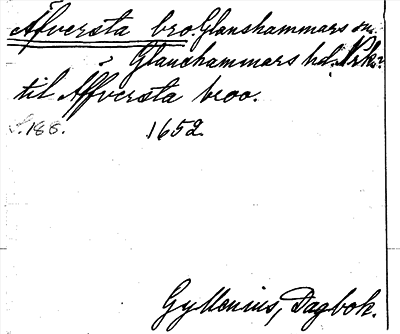 Äfversta bro. Glanshammars sn.
Glanshammars hd. Nrke.
til Åffversta broo.
S. 188. 1652.
Gyllenius, Dagbok.